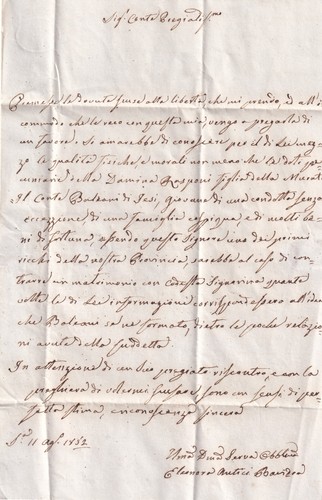 Sig.r Conte Pregiatis.mo
Premesse le dovute scuse alla libertà che mi prendo, ed all'in
commodo che le reco con questa mia vengo a pregarla di
un favore. Si amarebbe di conoscere per il di Lei mez
zo le qualità fisiche, e morali non meno che la dote pe
cuniaria della Damina Rasponi figlia della Murat
Il Conte Baleani di Jesi, giovane di una condotta senza
eccezzione di una famiglia cospigua e di molti be
ni di fortuna, essendo questo Signore uno dei primi
ricchi della nostra Provincia sarebbe al caso di con
trarre un matrimonio con codesta Signorina quante
volte le di Lei informazioni corrispondessero all'idea
che Baleani se ne formato, dietro le poche relazio
ni avute della suddetta.
In attenzione di un suo pregiato riscontro, e con la
preghiera di volermi scusare sono con sensi di per
fetta stima, e riconoscenza sincera
11 Ag. 1852
Uma Dma Serva Obblma
Eleonora Antici